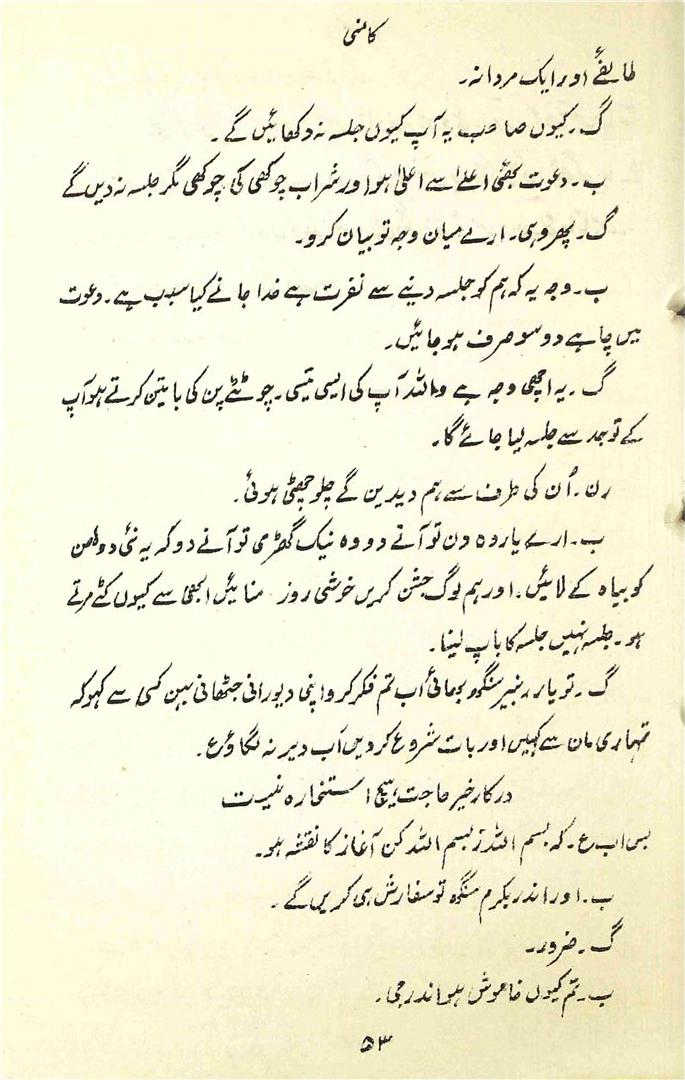 کامنی
طایفے اور ایک مردانہ۔
گ۔ کیوں صاحب یہ آپ کیوں جلسہ نہ دکھائیں گے۔
ب۔ دعوت بھئی اعلیٰ سے اعلیٰ ہو اور شراب چوکھی کی چوکھی مگر جلسہ نہ دیں گے
گ۔ پھر وہی۔ ارے میان وجہ تو بیان کرو۔
ب۔ وجہ یہ کہ ہم کو جلسہ دینے سے نفرت ہے خدا جانے کیا سبب ہے۔ دعوت
میں چاہے دو سو صرف ہو جائیں۔
گ۔ یہ اچھی وجہ ہے واللہ آپ کی ایسی تیسی۔ چوٹٹے پن کی باتین کرتے ہو آپ
کے تو جد سے جلسہ لیا جائے گا۔
رن۔ اُن کی طرف سے ہم دیدین گے چلو چھٹی ہوئی۔
ب۔ ارے یار وہ دن تو آنے دو وہ نیک گھڑی تو آنے دو کہ یہ نئی دولھن
کو بیاہ کے لائیں۔ اور ہم لوگ جشن کریں خوشی روز منائیں ابھی سے کیوں کٹے مرتے
ہو۔ جلسہ نہیں جلسہ کا باپ لینا۔
گ۔ تو یار رنبیر سنگھ بھائی اب تم فکر کرو اپنی دیورانی جٹھانی بہن کسی سے کہو کہ
تمہاری مان سے کہیں اور بات شروع کردیں اب دیر نہ لگاؤ ع۔
درکار خیر حاجت ہیچ استخارہ نیست
بس اب ع۔ کہ بسم اللہ ز بسم اللہ کن آغاز کا نقشہ ہو۔
ب۔ اور اندر بکرم سنگھ تو سفارش ہی کریں گے۔
گ۔ ضرور۔
ب۔ تم کیوں خاموش ہو اندر جی۔
۵۳